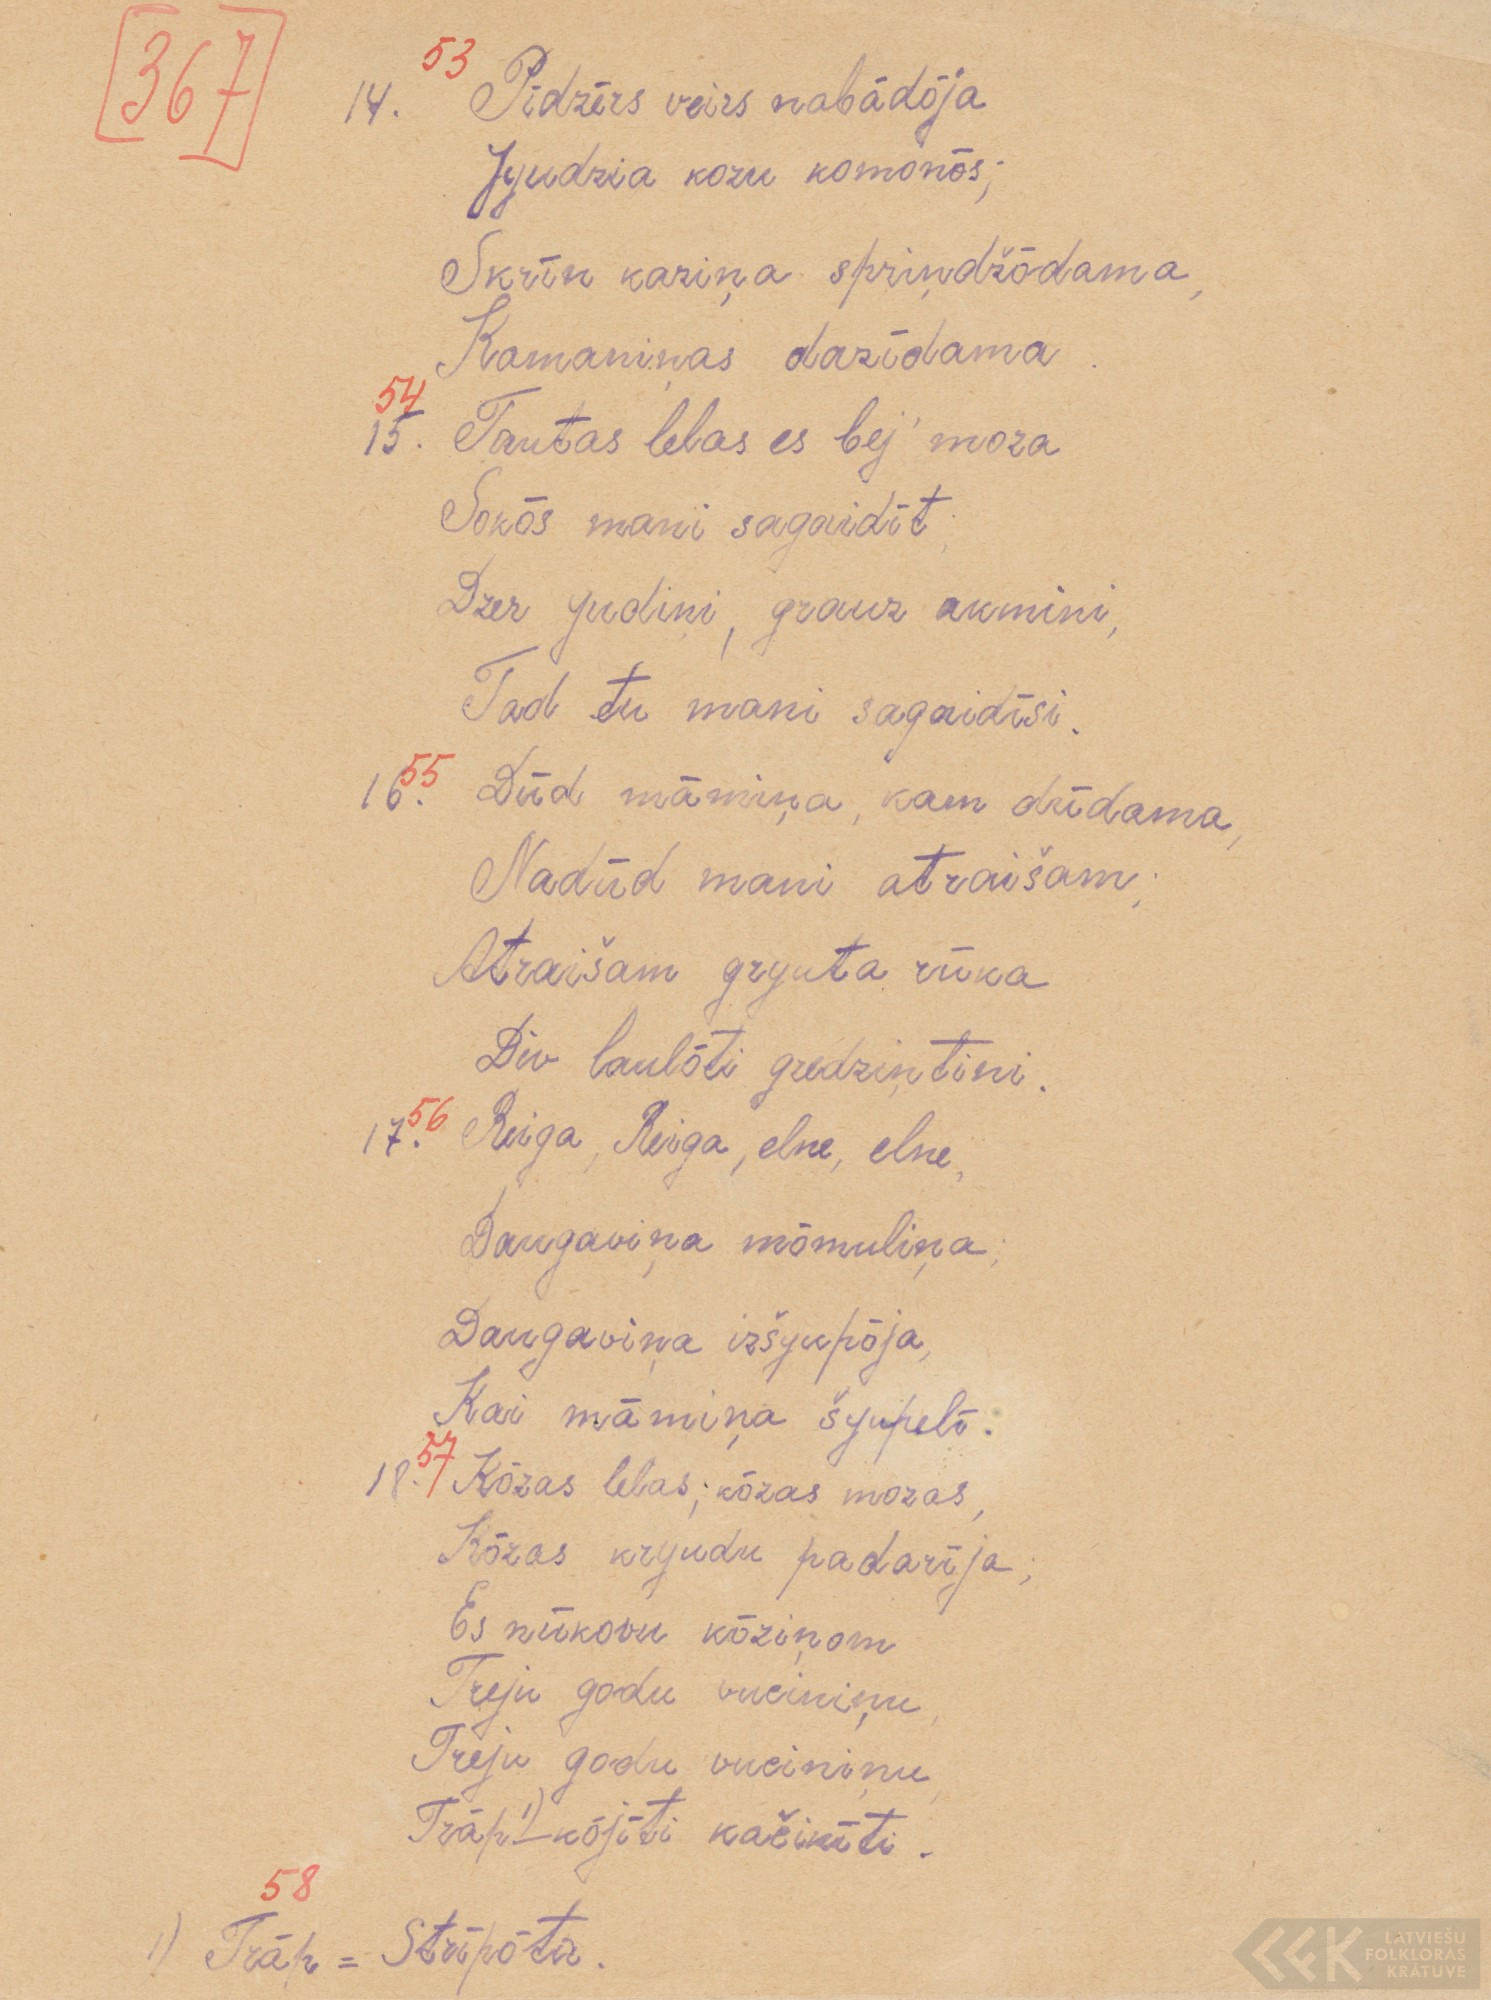 [367]
53
14. Pīdzērs veirs nabādōja
Jyudzia kozu komonōs;
Skrīn kaziņa spriņdžōdama,
Kamaniņas dazīdama.
54
15. Tautas lelas es bej' moza
Sokōs mani sagaidīt;
Dzer yudiņi, grauz akmini,
Tad tu mani sagaidīsi.
55
16. Dūd māmiņa, kam dūdama,
Nadūd mani atraišam;
Atraišam gryuta rūka
Div laulōti gredziņtini.
56
17. Reiga, Reiga, elne, elne,
Daugaviņa mōmuliņa;
Daugaviņa izšyupōja,
Kai māmiņa šyupelī.
57
18. Kōzas lelas; kōzas mozas,
Kōzas kryudu padarīja;
Es nūkovu kōziņom
Treju godu vuciniņu,
Treju godu vuciniņu,
Trāp¹⁾-kōjīti kačikīti.
58
1) Trāp = Strīpōta.
LATVIEŠU
FOLKLORAS
KRĀTUVE